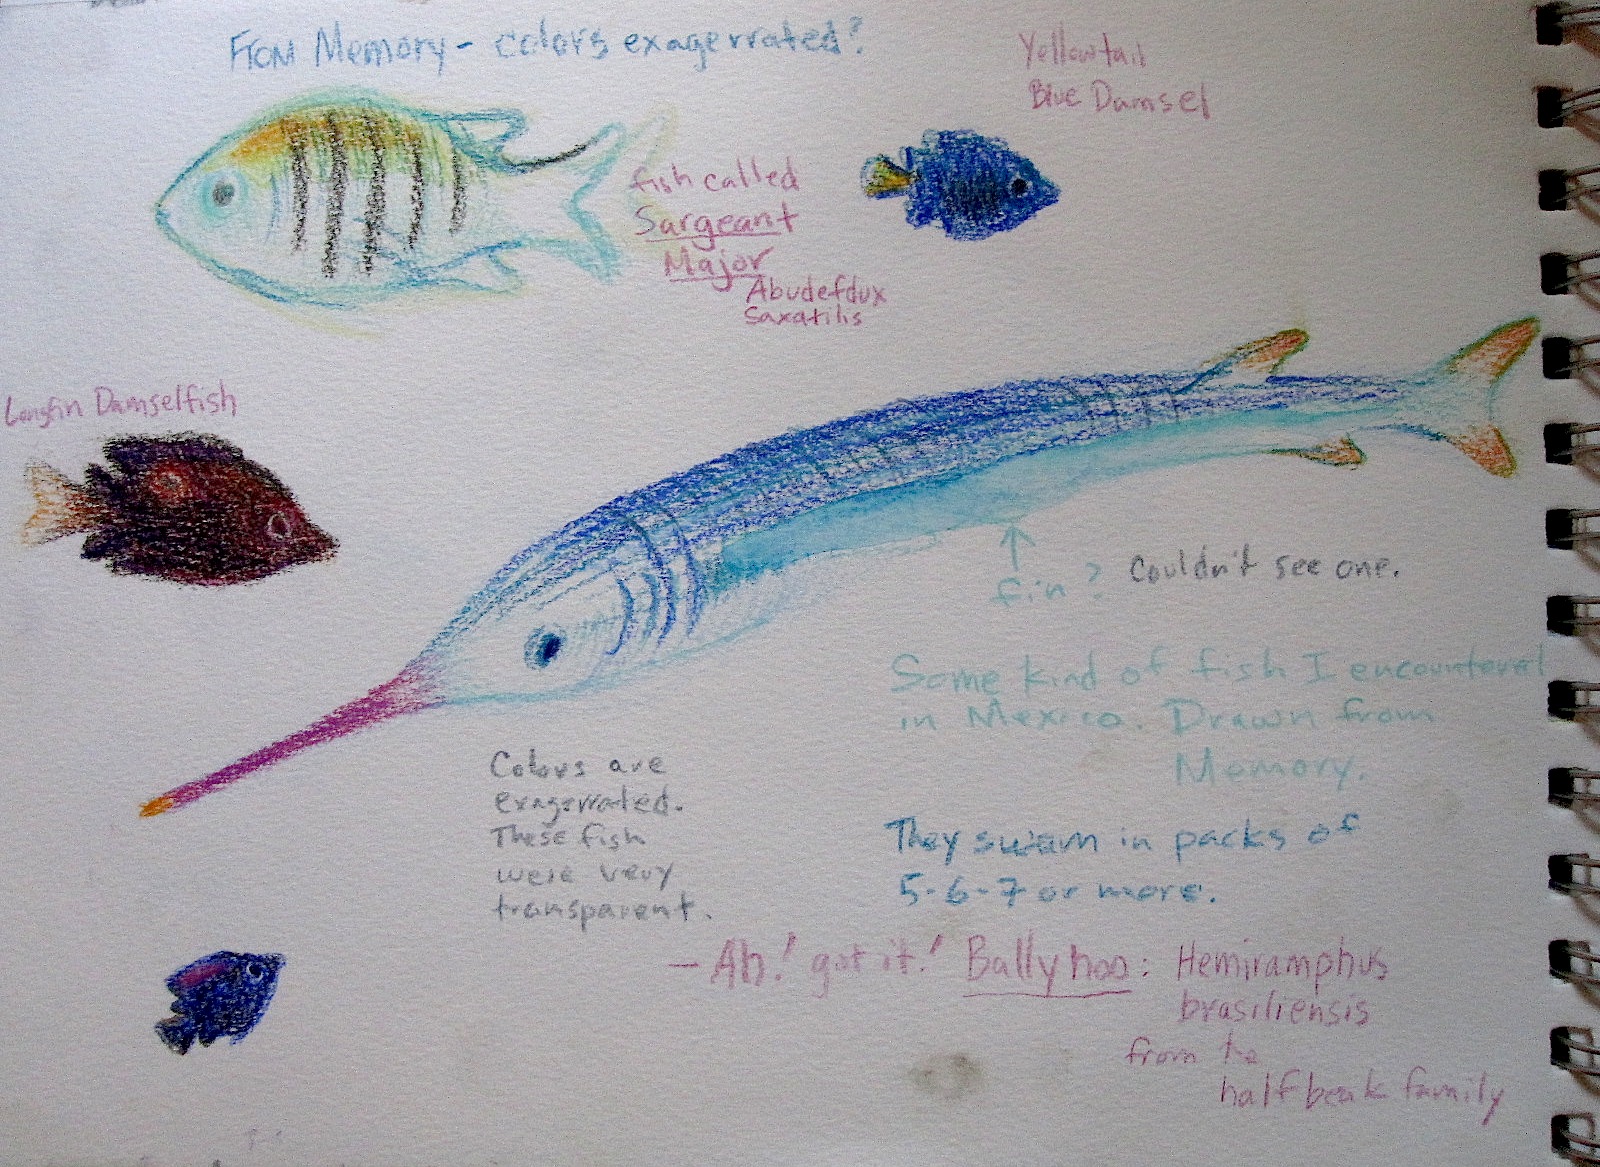 From Memory - colors exagerrated?
Yellowtail
Blue Damsel
fish called
Sargeant
Major
Abudefdux
Saxatilis
Longfin Damselfish
fin? Couldn't see one.
Some kind of fish I encountered
in Mexico. Drawn from
Memory.
Colors are
exagerrated.
These fish
were very
transparent.
They swam in packs of
5-6-7 or more.
- Ah! got it! Ballyhoo: Hemiramphus
brasiliensis
from the
halfbeak family